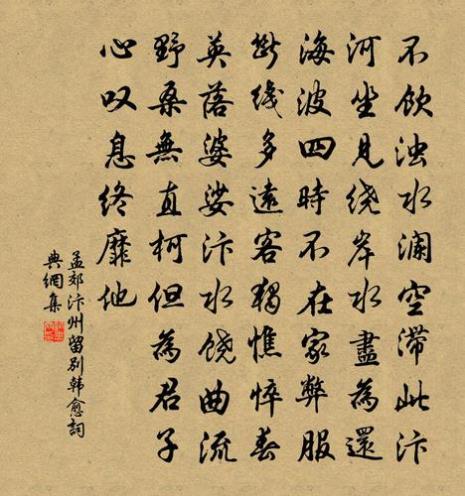 不飲浊水澜空滞此汴
河坐見绕岸水盡為還
海波四時不在家弊服
断线多遠客獨憔悴春
英落婆娑汴水饶曲流
野桑無直柯但為君子
心叹息终靡他
孟郊汴州留别韩愈詞
典網集